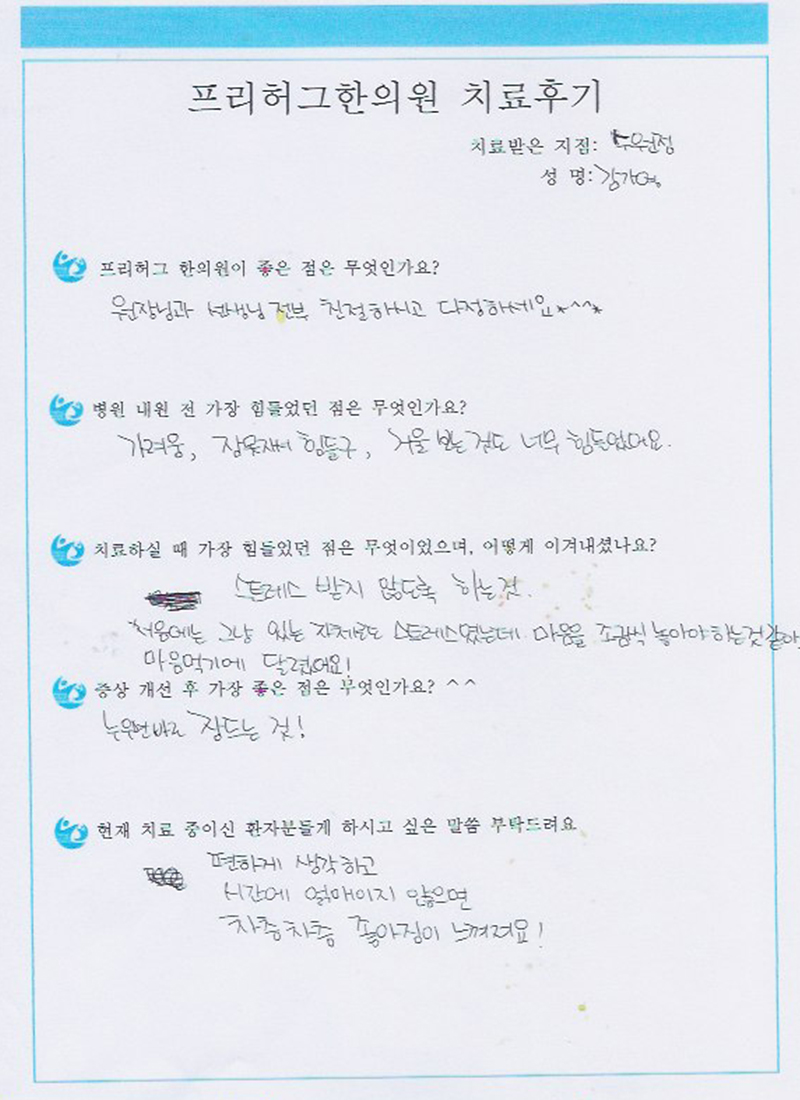 프리허그한의원 치료후기
치료받은 지점: 수원점
성 명: 강가영
프리허그 한의원이 좋은 점은 무엇인가요?
원장님과 선생님 전부 친절하시고 다정하세요*^^*
병원 내원 전 가장 힘들었던 점은 무엇인가요?
가려움, 잠못자서 힘들구, 거울 보는 것도 너무 힘들었어요.
치료하실 때 가장 힘들었던 점은 무엇이었으며, 어떻게 이겨내셨나요?
스트레스 받지 않도록 하는것.
처음에는 그냥 있는 자체로도 스트레스였는데 마음을 조금씩 놓아야 하는것 같아
마음먹기에 달렸어요!
증상 개선 후 가장 좋은 점은 무엇인가요? ^^
누우면바로 잠드는 것!
현재 치료 중이신 환자분들게 하시고 싶은 말씀 부탁드려요
편하게 생각하고
시간에 얽매이지 않으면
차츰차츰 좋아짐이 느껴져요!